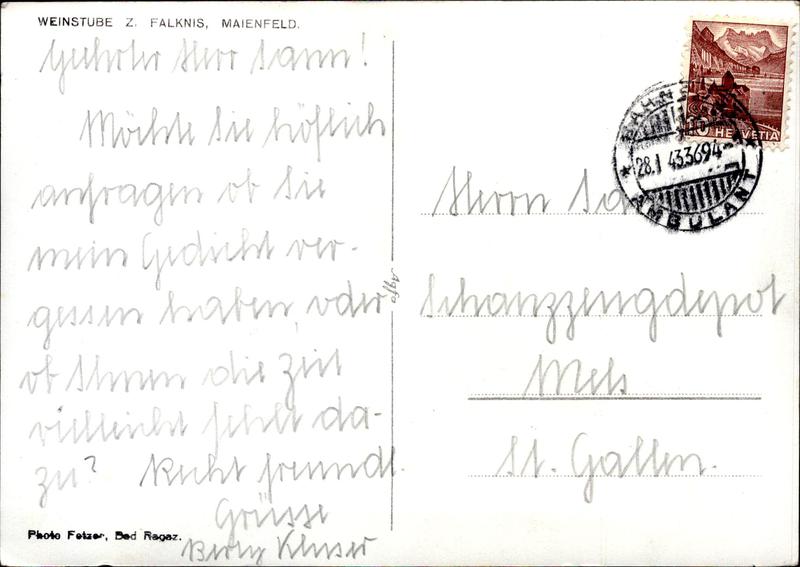 WEINSTUBE Z. FALKNIS, MAIENFELD.
Geehrter Herr Sann!
Möchte Sie höflich
anfragen ob Sie
mein Gedicht ver-
gessen haben, oder
ob Ihnen die Zeit
vielleicht fehlt da-
zu? Recht freundl.
Grüsse
Photo Fetzer, Bad Ragaz.
Agfa
HELVETIA
28.I 43 3694
AMBULANT
Herrn
Schanzzeugdepot
Mels
St. Gallen.